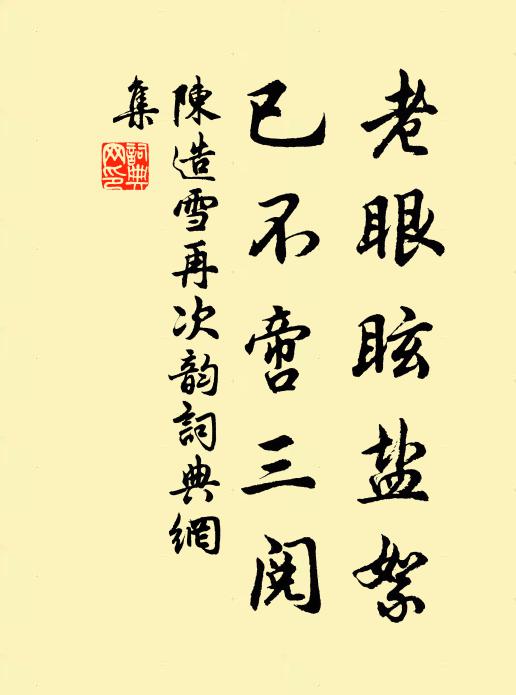 老眼眩盐絮
已不啻三阅
陳造雪再次韵詞典網
集
詞典網印